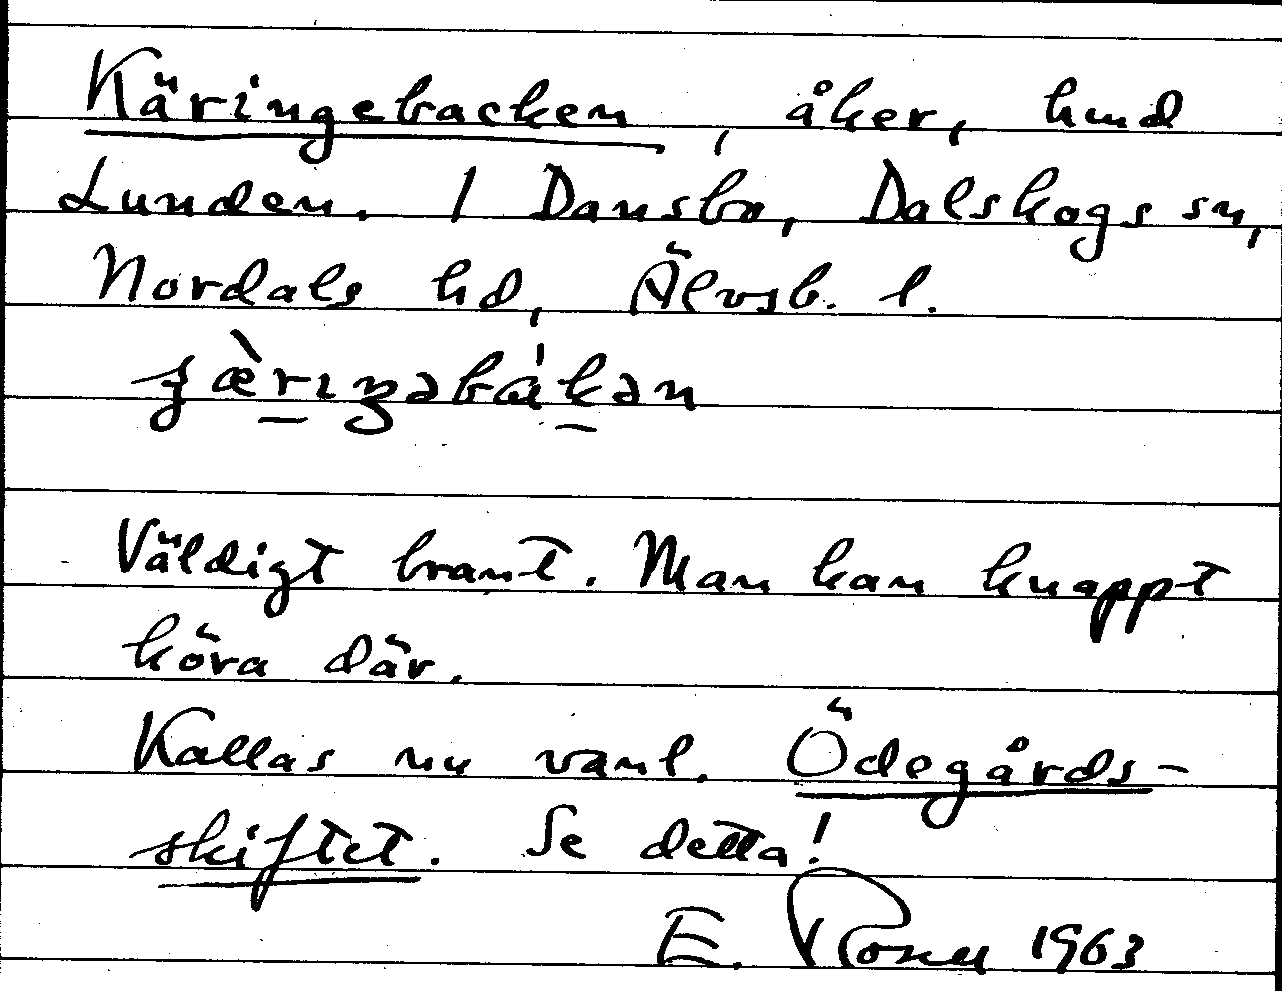 Käringebacken, åker, hmd
Lunden. 1 Dansbo, Dalskogs sn,
Nordals hd, Älvsb. l.
Väldigt brant. Man kan knappt
köra där.
Kallas nu vanl. Ödegårds-
skiftet. Se detta!
E. 1963